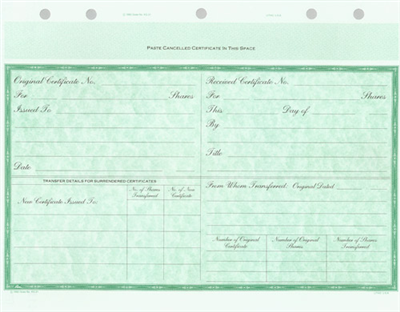 PASTE CANCELLED CERTIFICATE IN THIS SPACE
Original Certificate No.
For Shares
Issued To
Date
Received Certificate No.
For Shares
This Day of
By
Title
TRANSFER DETAILS FOR SURRENDERED CERTIFICATES
New Certificate Issued To:
No. of Shares Transferred
No. of New Certificate
From Whom Transferred: Original Dated
Number of Original Certificate
Number of Original Shares
Number of Shares Transferred